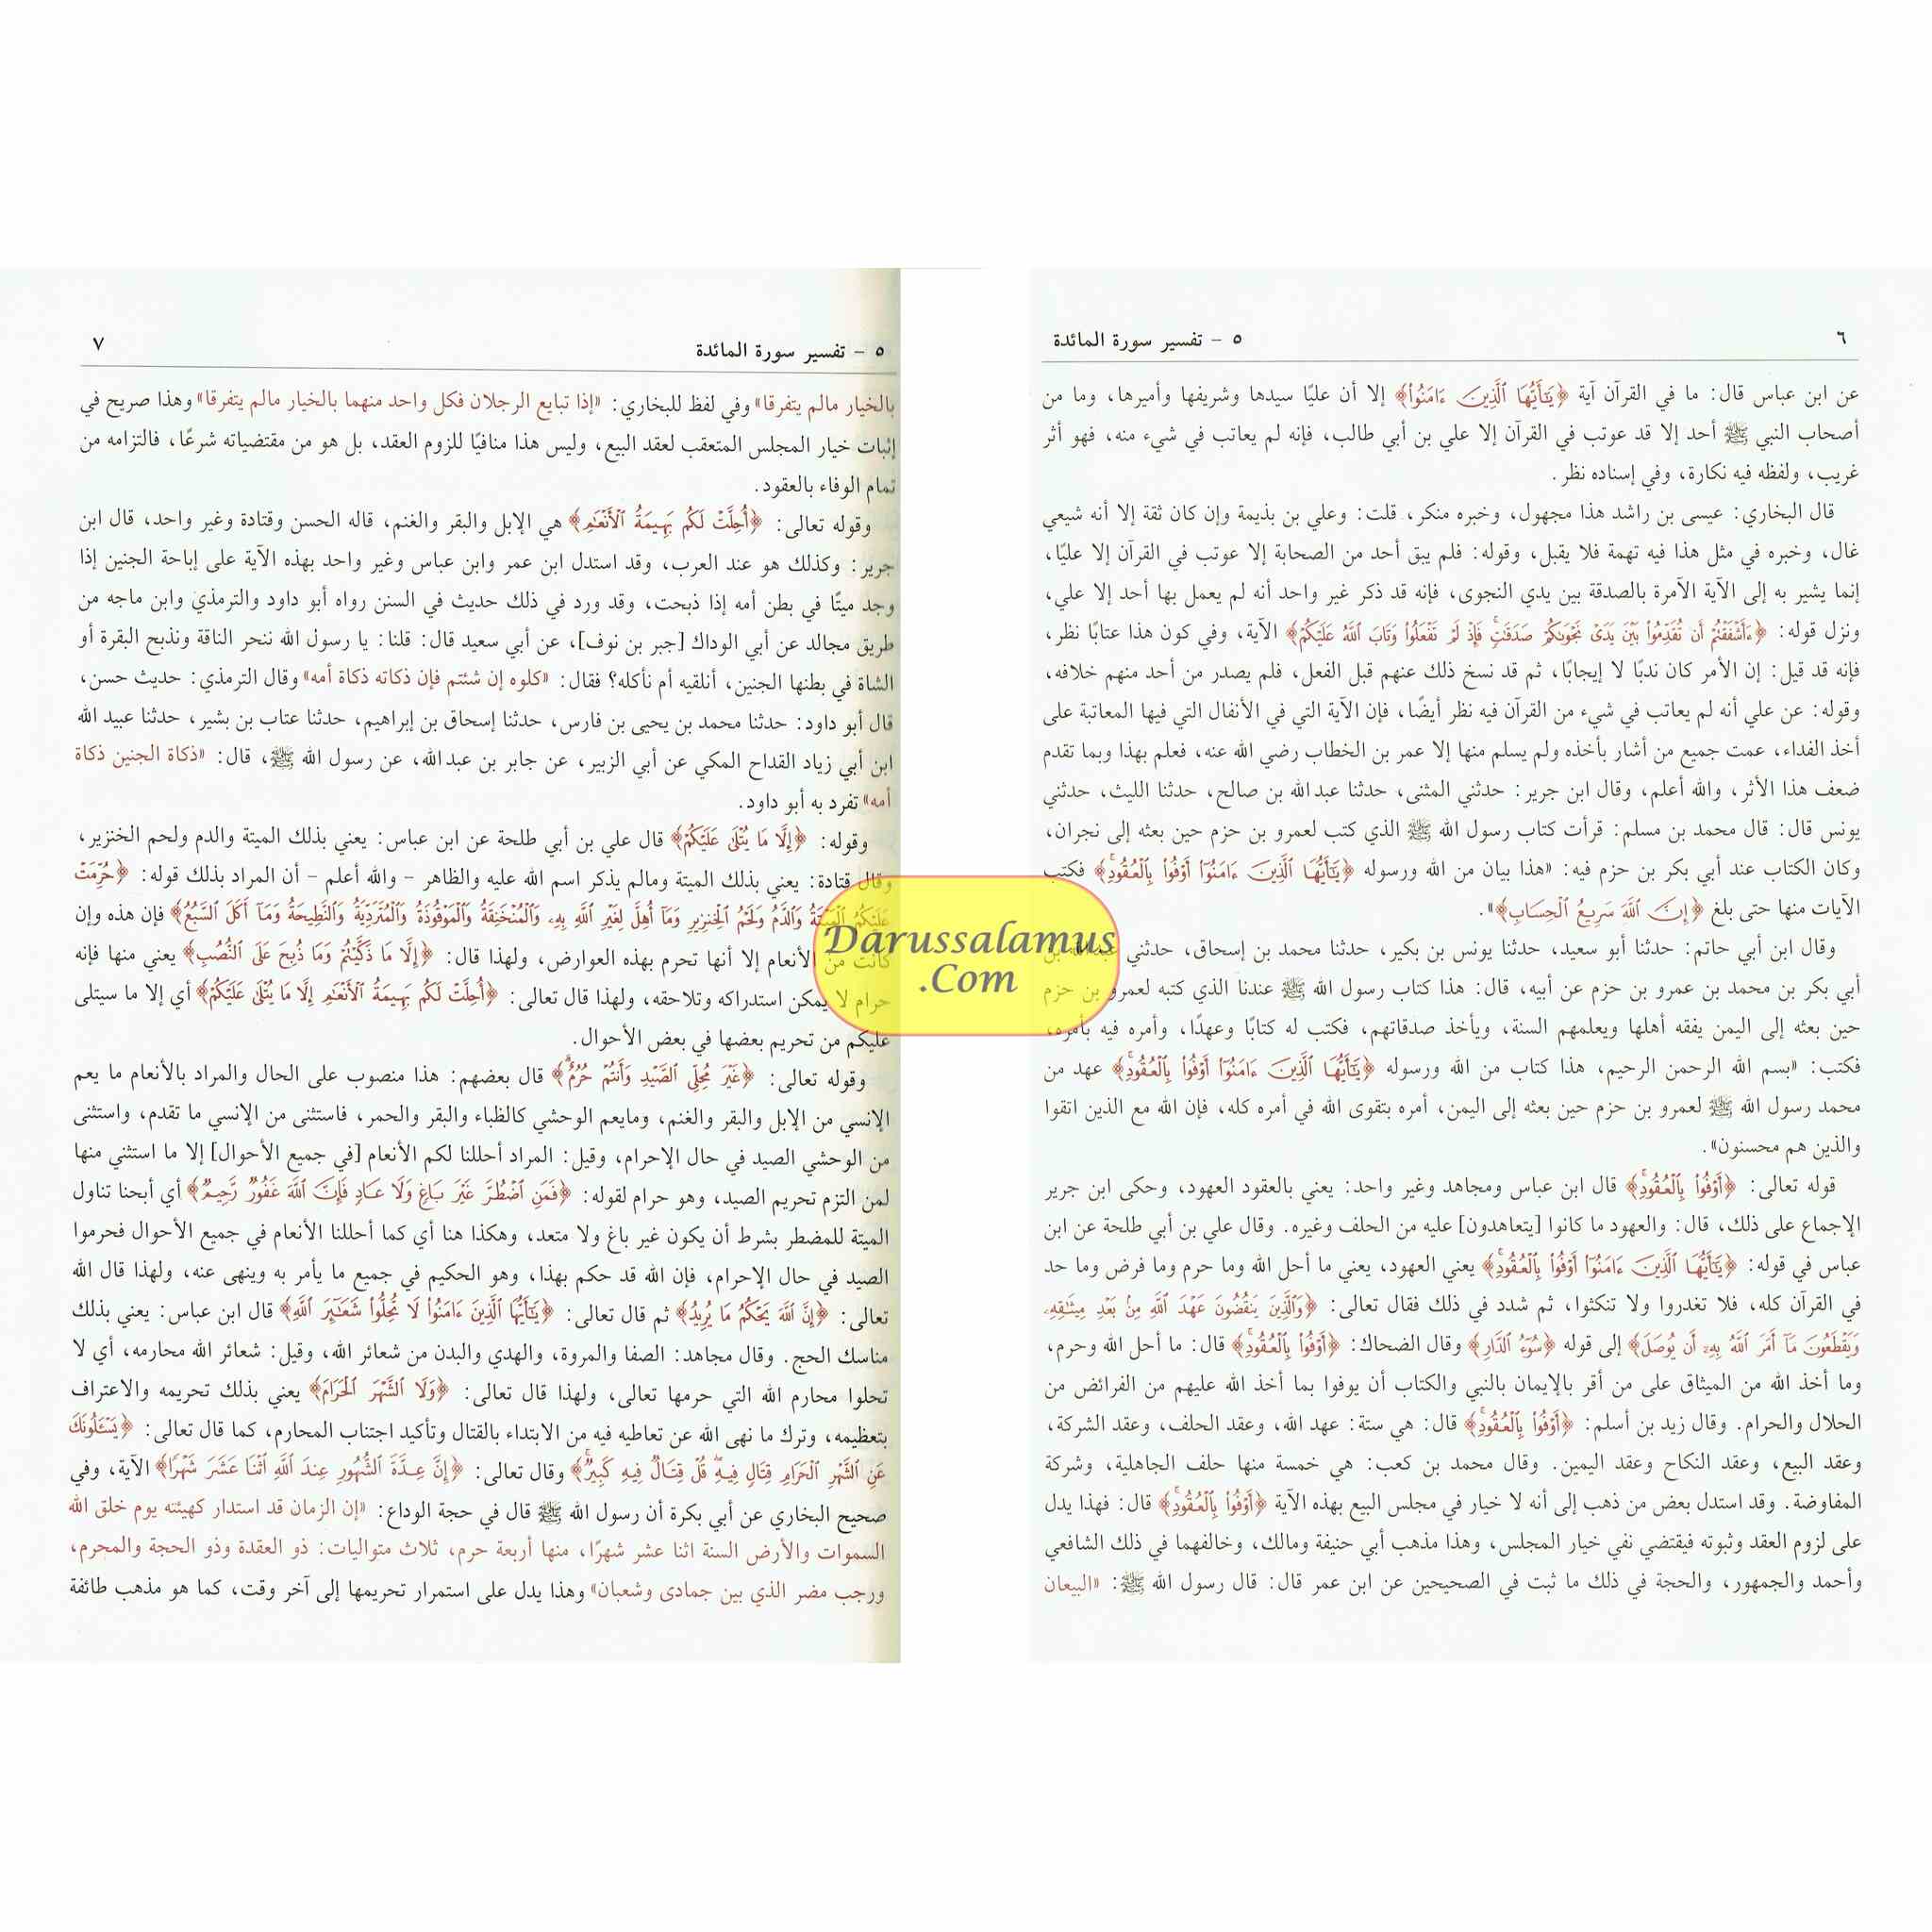 ٦
٥ - تفسير سورة المائدة
عن ابن عباس قال: ما في القرآن آية ﴿يَٰٓأَيُّهَا ٱلَّذِينَ ءَامَنُوا۟﴾ إلا أن عليًا سيدها وشريفها وأميرها، وما من
أصحاب النبي ﷺ أحد إلا قد عوتب في القرآن إلا علي بن أبي طالب، فإنه لم يعاتب في شيء منه، فهو أثر
غريب، ولفظه فيه نكارة، وفي إسناده نظر.
قال البخاري: عيسى بن راشد هذا مجهول، وخبره منكر، قلت: وعلي بن بذيمة وإن كان ثقة إلا أنه شيعي
غال، وخبره في مثل هذا فيه تهمة فلا يقبل، وقوله: فلم يبق أحد من الصحابة إلا عوتب في القرآن إلا عليًا،
إنما يشير به إلى الآية الآمرة بالصدقة بين يدي النجوى، فإنه قد ذكر غير واحد أنه لم يعمل بها أحد إلا علي،
ونزل قوله: ﴿ءَأَشْفَقْتُمْ أَن تُقَدِّمُوا۟ بَيْنَ يَدَىْ نَجْوَىٰكُمْ صَدَقَٰتٍ ۚ فَإِذْ لَمْ تَفْعَلُوا۟ وَتَابَ ٱللَّهُ عَلَيْكُمْ﴾ الآية، وفي كون هذا عتابًا نظر،
فإنه قد قيل: إن الأمر كان ندبًا لا إيجابًا، ثم قد نسخ ذلك عنهم قبل الفعل، فلم يصدر من أحد منهم خلافه،
وقوله: عن علي أنه لم يعاتب في شيء من القرآن فيه نظر أيضًا، فإن الآية التي في الأنفال التي فيها المعاتبة على
أخذ الفداء، عمت جميع من أشار بأخذه ولم يسلم منها إلا عمر بن الخطاب رضي الله عنه، فعلم بهذا وبما تقدم
ضعف هذا الأثر، والله أعلم، وقال ابن جرير: حدثني المثنى، حدثنا عبدالله بن صالح، حدثنا الليث، حدثني
يونس قال: قال محمد بن مسلم: قرأت كتاب رسول الله ﷺ الذي كتب لعمرو بن حزم حين بعثه إلى نجران،
وكان الكتاب عند أبي بكر بن حزم فيه: «هذا بيان من الله ورسوله ﴿يَٰٓأَيُّهَا ٱلَّذِينَ ءَامَنُوٓا۟ أَوْفُوا۟ بِٱلْعُقُودِ ۚ﴾ فكتب
الآيات منها حتى بلغ ﴿إِنَّ ٱللَّهَ سَرِيعُ ٱلْحِسَابِ﴾».
وقال ابن أبي حاتم: حدثنا أبو سعيد، حدثنا يونس بن بكير، حدثنا محمد بن إسحاق، حدثني عبدالله بن
أبي بكر بن محمد بن عمرو بن حزم عن أبيه، قال: هذا كتاب رسول الله ﷺ عندنا الذي كتبه لعمرو بن حزم
حين بعثه إلى اليمن يفقه أهلها ويعلمهم السنة، ويأخذ صدقاتهم، فكتب له كتابًا وعهدًا، وأمره فيه بأمره،
فكتب: «بسم الله الرحمن الرحيم، هذا كتاب من الله ورسوله ﴿يَٰٓأَيُّهَا ٱلَّذِينَ ءَامَنُوٓا۟ أَوْفُوا۟ بِٱلْعُقُودِ ۚ﴾ عهد من
محمد رسول الله ﷺ لعمرو بن حزم حين بعثه إلى اليمن، أمره بتقوى الله في أمره كله، فإن الله مع الذين اتقوا
والذين هم محسنون».
قوله تعالى: ﴿أَوْفُوا۟ بِٱلْعُقُودِ ۚ﴾ قال ابن عباس ومجاهد وغير واحد: يعني بالعقود العهود، وحكى ابن جرير
الإجماع على ذلك، قال: والعهود ما كانوا [يتعاهدون] عليه من الحلف وغيره. وقال علي بن أبي طلحة عن ابن
عباس في قوله: ﴿يَٰٓأَيُّهَا ٱلَّذِينَ ءَامَنُوٓا۟ أَوْفُوا۟ بِٱلْعُقُودِ ۚ﴾ يعني العهود، يعني ما أحل الله وما حرم وما فرض وما حد
في القرآن كله، فلا تغدروا ولا تنكثوا، ثم شدد في ذلك فقال تعالى: ﴿وَٱلَّذِينَ يَنقُضُونَ عَهْدَ ٱللَّهِ مِنۢ بَعْدِ مِيثَٰقِهِۦ
وَيَقْطَعُونَ مَآ أَمَرَ ٱللَّهُ بِهِۦٓ أَن يُوصَلَ﴾ إلى قوله ﴿سُوٓءُ ٱلدَّارِ﴾ وقال الضحاك: ﴿أَوْفُوا۟ بِٱلْعُقُودِ ۚ﴾ قال: ما أحل الله وحرم،
وما أخذ الله من الميثاق على من أقر بالإيمان بالنبي والكتاب أن يوفوا بما أخذ الله عليهم من الفرائض من
الحلال والحرام. وقال زيد بن أسلم: ﴿أَوْفُوا۟ بِٱلْعُقُودِ ۚ﴾ قال: هي ستة: عهد الله، وعقد الحلف، وعقد الشركة،
وعقد البيع، وعقد النكاح وعقد اليمين. وقال محمد بن كعب: هي خمسة منها حلف الجاهلية، وشركة
المفاوضة. وقد استدل بعض من ذهب إلى أنه لا خيار في مجلس البيع بهذه الآية ﴿أَوْفُوا۟ بِٱلْعُقُودِ ۚ﴾ قال: فهذا يدل
على لزوم العقد وثبوته فيقتضي نفي خيار المجلس، وهذا مذهب أبي حنيفة ومالك، وخالفهما في ذلك الشافعي
وأحمد والجمهور، والحجة في ذلك ما ثبت في الصحيحين عن ابن عمر قال: قال رسول الله ﷺ: «البيعان
٥ - تفسير سورة المائدة
٧
بالخيار مالم يتفرقا» وفي لفظ للبخاري: «إذا تبايع الرجلان فكل واحد منهما بالخيار مالم يتفرقا» وهذا صريح في
إثبات خيار المجلس المتعقب لعقد البيع، وليس هذا منافيًا للزوم العقد، بل هو من مقتضياته شرعًا، فالتزامه من
تمام الوفاء بالعقود.
وقوله تعالى: ﴿أُحِلَّتْ لَكُم بَهِيمَةُ ٱلْأَنْعَٰمِ﴾ هي الإبل والبقر والغنم، قاله الحسن وقتادة وغير واحد، قال ابن
جرير: وكذلك هو عند العرب، وقد استدل ابن عمر وابن عباس وغير واحد بهذه الآية على إباحة الجنين إذا
وجد ميتًا في بطن أمه إذا ذبحت، وقد ورد في ذلك حديث في السنن رواه أبو داود والترمذي وابن ماجه من
طريق مجالد عن أبي الوداك [جبر بن نوف]، عن أبي سعيد قال: قلنا: يا رسول الله ننحر الناقة ونذبح البقرة أو
الشاة في بطنها الجنين، أنلقيه أم نأكله؟ فقال: «كلوه إن شئتم فإن ذكاته ذكاة أمه» وقال الترمذي: حديث حسن،
قال أبو داود: حدثنا محمد بن يحيى بن فارس، حدثنا إسحاق بن إبراهيم، حدثنا عتاب بن بشير، حدثنا عبيد الله
ابن أبي زياد القداح المكي عن أبي الزبير، عن جابر بن عبدالله، عن رسول الله ﷺ، قال: «ذكاة الجنين ذكاة
أمه» تفرد به أبو داود.
وقوله: ﴿إِلَّا مَا يُتْلَىٰ عَلَيْكُمْ﴾ قال علي بن أبي طلحة عن ابن عباس: يعني بذلك الميتة والدم ولحم الخنزير،
وقال قتادة: يعني بذلك الميتة ومالم يذكر اسم الله عليه والظاهر - والله أعلم - أن المراد بذلك قوله: ﴿حُرِّمَتْ
عَلَيْكُمُ ٱلْمَيْتَةُ وَٱلدَّمُ وَلَحْمُ ٱلْخِنزِيرِ وَمَآ أُهِلَّ لِغَيْرِ ٱللَّهِ بِهِۦ وَٱلْمُنْخَنِقَةُ وَٱلْمَوْقُوذَةُ وَٱلْمُتَرَدِّيَةُ وَٱلنَّطِيحَةُ وَمَآ أَكَلَ ٱلسَّبُعُ﴾ فإن هذه وإن
كانت من الأنعام إلا أنها تحرم بهذه العوارض، ولهذا قال: ﴿إِلَّا مَا ذَكَّيْتُمْ وَمَا ذُبِحَ عَلَى ٱلنُّصُبِ﴾ يعني منها فإنه
حرام لا يمكن استدراكه وتلاحقه، ولهذا قال تعالى: ﴿أُحِلَّتْ لَكُم بَهِيمَةُ ٱلْأَنْعَٰمِ إِلَّا مَا يُتْلَىٰ عَلَيْكُمْ﴾ أي إلا ما سيتلى
عليكم من تحريم بعضها في بعض الأحوال.
وقوله تعالى: ﴿غَيْرَ مُحِلِّى ٱلصَّيْدِ وَأَنتُمْ حُرُمٌ ۗ﴾ قال بعضهم: هذا منصوب على الحال والمراد بالأنعام ما يعم
الإنسي من الإبل والبقر والغنم، ومايعم الوحشي كالظباء والبقر والحمر، فاستثنى من الإنسي ما تقدم، واستثنى
من الوحشي الصيد في حال الإحرام، وقيل: المراد أحللنا لكم الأنعام [في جميع الأحوال] إلا ما استثني منها
لمن التزم تحريم الصيد، وهو حرام لقوله: ﴿فَمَنِ ٱضْطُرَّ غَيْرَ بَاغٍ وَلَا عَادٍ فَإِنَّ ٱللَّهَ غَفُورٌ رَّحِيمٌ﴾ أي أبحنا تناول
الميتة للمضطر بشرط أن يكون غير باغ ولا متعد، وهكذا هنا أي كما أحللنا الأنعام في جميع الأحوال فحرموا
الصيد في حال الإحرام، فإن الله قد حكم بهذا، وهو الحكيم في جميع ما يأمر به وينهى عنه، ولهذا قال الله
تعالى: ﴿إِنَّ ٱللَّهَ يَحْكُمُ مَا يُرِيدُ﴾ ثم قال تعالى: ﴿يَٰٓأَيُّهَا ٱلَّذِينَ ءَامَنُوا۟ لَا تُحِلُّوا۟ شَعَٰٓئِرَ ٱللَّهِ﴾ قال ابن عباس: يعني بذلك
مناسك الحج. وقال مجاهد: الصفا والمروة، والهدي والبدن من شعائر الله، وقيل: شعائر الله محارمه، أي لا
تحلوا محارم الله التي حرمها تعالى، ولهذا قال تعالى: ﴿وَلَا ٱلشَّهْرَ ٱلْحَرَامَ﴾ يعني بذلك تحريمه والاعتراف
بتعظيمه، وترك ما نهى الله عن تعاطيه فيه من الابتداء بالقتال وتأكيد اجتناب المحارم، كما قال تعالى: ﴿يَسْـَٔلُونَكَ
عَنِ ٱلشَّهْرِ ٱلْحَرَامِ قِتَالٍ فِيهِ ۖ قُلْ قِتَالٌ فِيهِ كَبِيرٌ ۚ﴾ وقال تعالى: ﴿إِنَّ عِدَّةَ ٱلشُّهُورِ عِندَ ٱللَّهِ ٱثْنَا عَشَرَ شَهْرًا﴾ الآية، وفي
صحيح البخاري عن أبي بكرة أن رسول الله ﷺ قال في حجة الوداع: «إن الزمان قد استدار كهيئته يوم خلق الله
السموات والأرض السنة اثنا عشر شهرًا، منها أربعة حرم، ثلاث متواليات: ذو العقدة وذو الحجة والمحرم،
ورجب مضر الذي بين جمادى وشعبان» وهذا يدل على استمرار تحريمها إلى آخر وقت، كما هو مذهب طائفة
Darussalamus
.Com